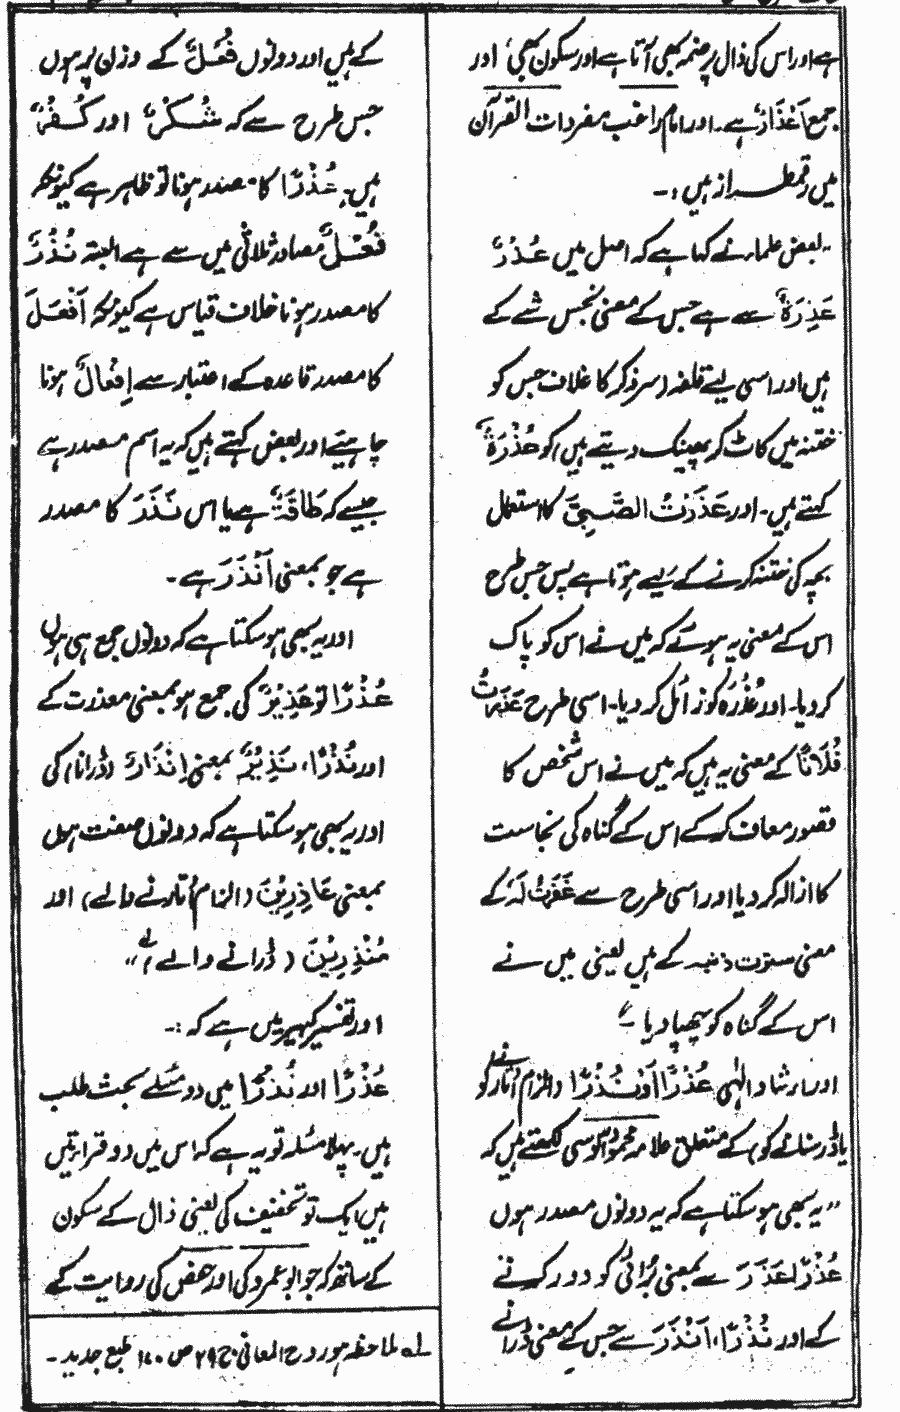 ہے اور اس کی ذال پر ضمہ بھی آتا ہے اور سکون بھی، اور
جمع اَعْذَارٌ ہے۔ اور امام راغب مفردات القرآن
میں رقمطراز ہیں :۔
"بعض علماء نے کہا ہے کہ اصل میں عُذْرٌ
عَذِرَةٌ سے ہے جس کے معنی نجس شے کے
ہیں اور اسی لیے قلفہ (سرِ ذکر کا غلاف جس کو
ختنہ میں کاٹ کر پھینک دیتے ہیں) کو عُذْرَةٌ
کہتے ہیں۔ اور عَذَرْتُ الصَّبِیَّ کا استعمال
بچہ کی ختنہ کرنے کے لیے ہوتا ہے پس جس طرح
اس کے معنی یہ ہوئے کہ میں نے اس کو پاک
کر دیا۔ اور عُذْرَہ کو زائل کر دیا۔ اسی طرح عَذَرْتُ
فُلَانًا کے معنی یہ ہیں کہ میں نے اس شخص کا
قصور معاف کر کے اس کے گناہ کی نجاست
کا ازالہ کر دیا اور اسی طرح سے غَفَرْتُ لَہٗ کے
معنی سترت ذنبہ کے ہیں یعنی میں نے
اس کے گناہ کو چھپا دیا۔"
اور ارشاد الٰہی عُذْرًا اَوْ نُذْرًا (الزام اتارنے کو
یا ڈر سنانے کو) کے متعلق علامہ محمود آلوسی لکھتے ہیں کہ
"یہ بھی ہو سکتا ہے کہ یہ دونوں مصدر ہوں
عُذْرًا عَذَرَ سے بمعنی بُرائی کو دور کرنے
کے اور نُذْرًا، اَنْذَرَ سے جس کے معنی ڈرانے
کے ہیں اور دونوں فُعْلٌ کے وزن پر ہوں
جس طرح سے کہ شُكْرٌ اور كُفْرٌ
ہیں۔ عُذْرًا کا مصدر ہونا تو ظاہر ہے کیونکہ
فُعْلٌ مصادر ثلاثی میں سے ہے البتہ نُذْرٌ
کا مصدر ہونا خلاف قیاس ہے کیونکہ اَفْعَلَ
کا مصدر قاعدہ کے اعتبار سے اِفْعَالٌ ہونا
چاہیے اور بعض کہتے ہیں کہ یہ اسم مصدر ہے
جیسے کہ طَاقَةٌ ہے یا اس نَذَرَ کا مصدر
ہے جو بمعنی اَنْذَرَ ہے۔
اور یہ بھی ہو سکتا ہے کہ دونوں جمع ہی ہوں
عُذْرًا تو عَذِيْرٌ کی جمع ہو بمعنی معذرت کے
اور نُذْرًا، نَذِيْرٌ بمعنی اِنْذَارٌ (ڈرانا) کی
اور یہ بھی ہو سکتا ہے کہ دونوں صفت ہوں
بمعنی عَاذِرِيْنَ (الزام اتارنے والے) اور
مُنْذِرِيْنَ (ڈرانے والے) لہ"
اور تفسیر کبیر میں ہے کہ :۔
عُذْرًا اور نُذْرًا میں دو مسئلے بحث طلب
ہیں۔ پہلا مسئلہ تو یہ ہے کہ اس میں دو قرائتیں
ہیں ایک تو تخفیف کی یعنی ذال کے سکون
کے ساتھ کہ جو ابو عمرو کی اور حفص کی روایت کے
لہ ملاحظہ ہو روح المعانی ج ۲۹ ص ۱۷۰ طبع جدید۔